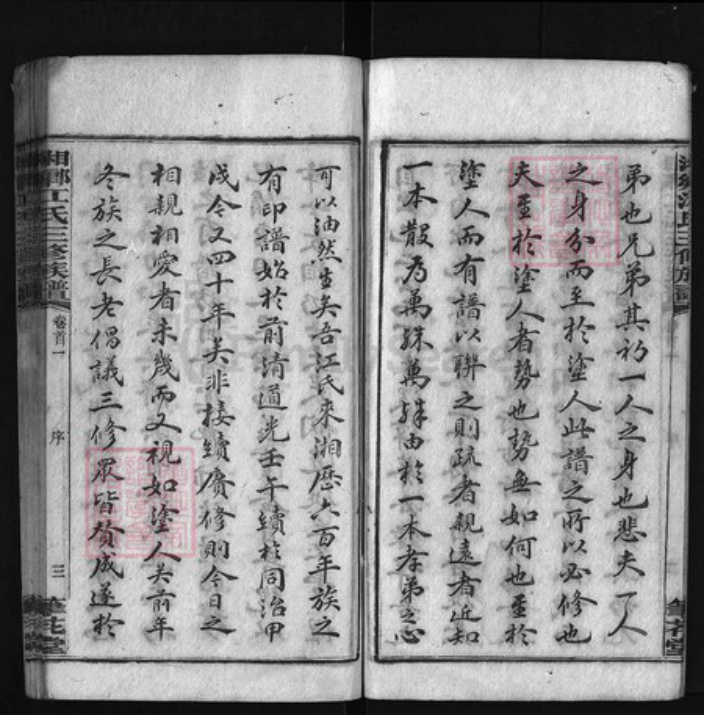 弟也兄弟其初一人之身也悲夫一人
之身分而至於塗人此譜之所以必修也
夫至於塗人者勢也勢無如何也至於
塗人而有譜以聯之則疏者親遠者近知
一本散為萬殊萬殊由於一本孝弟之心
可以油然生矣吾江氏來湘歷六百年族之
有印譜始於前清道光壬午續於同治甲
戌今又四十年矣非接續廣修則今日之
相親相愛者未幾而又視如塗人矣前年
冬族之長老倡議三修眾皆贊成遂於
湘鄉江氏三修族譜
卷首一
序
三
筆花堂